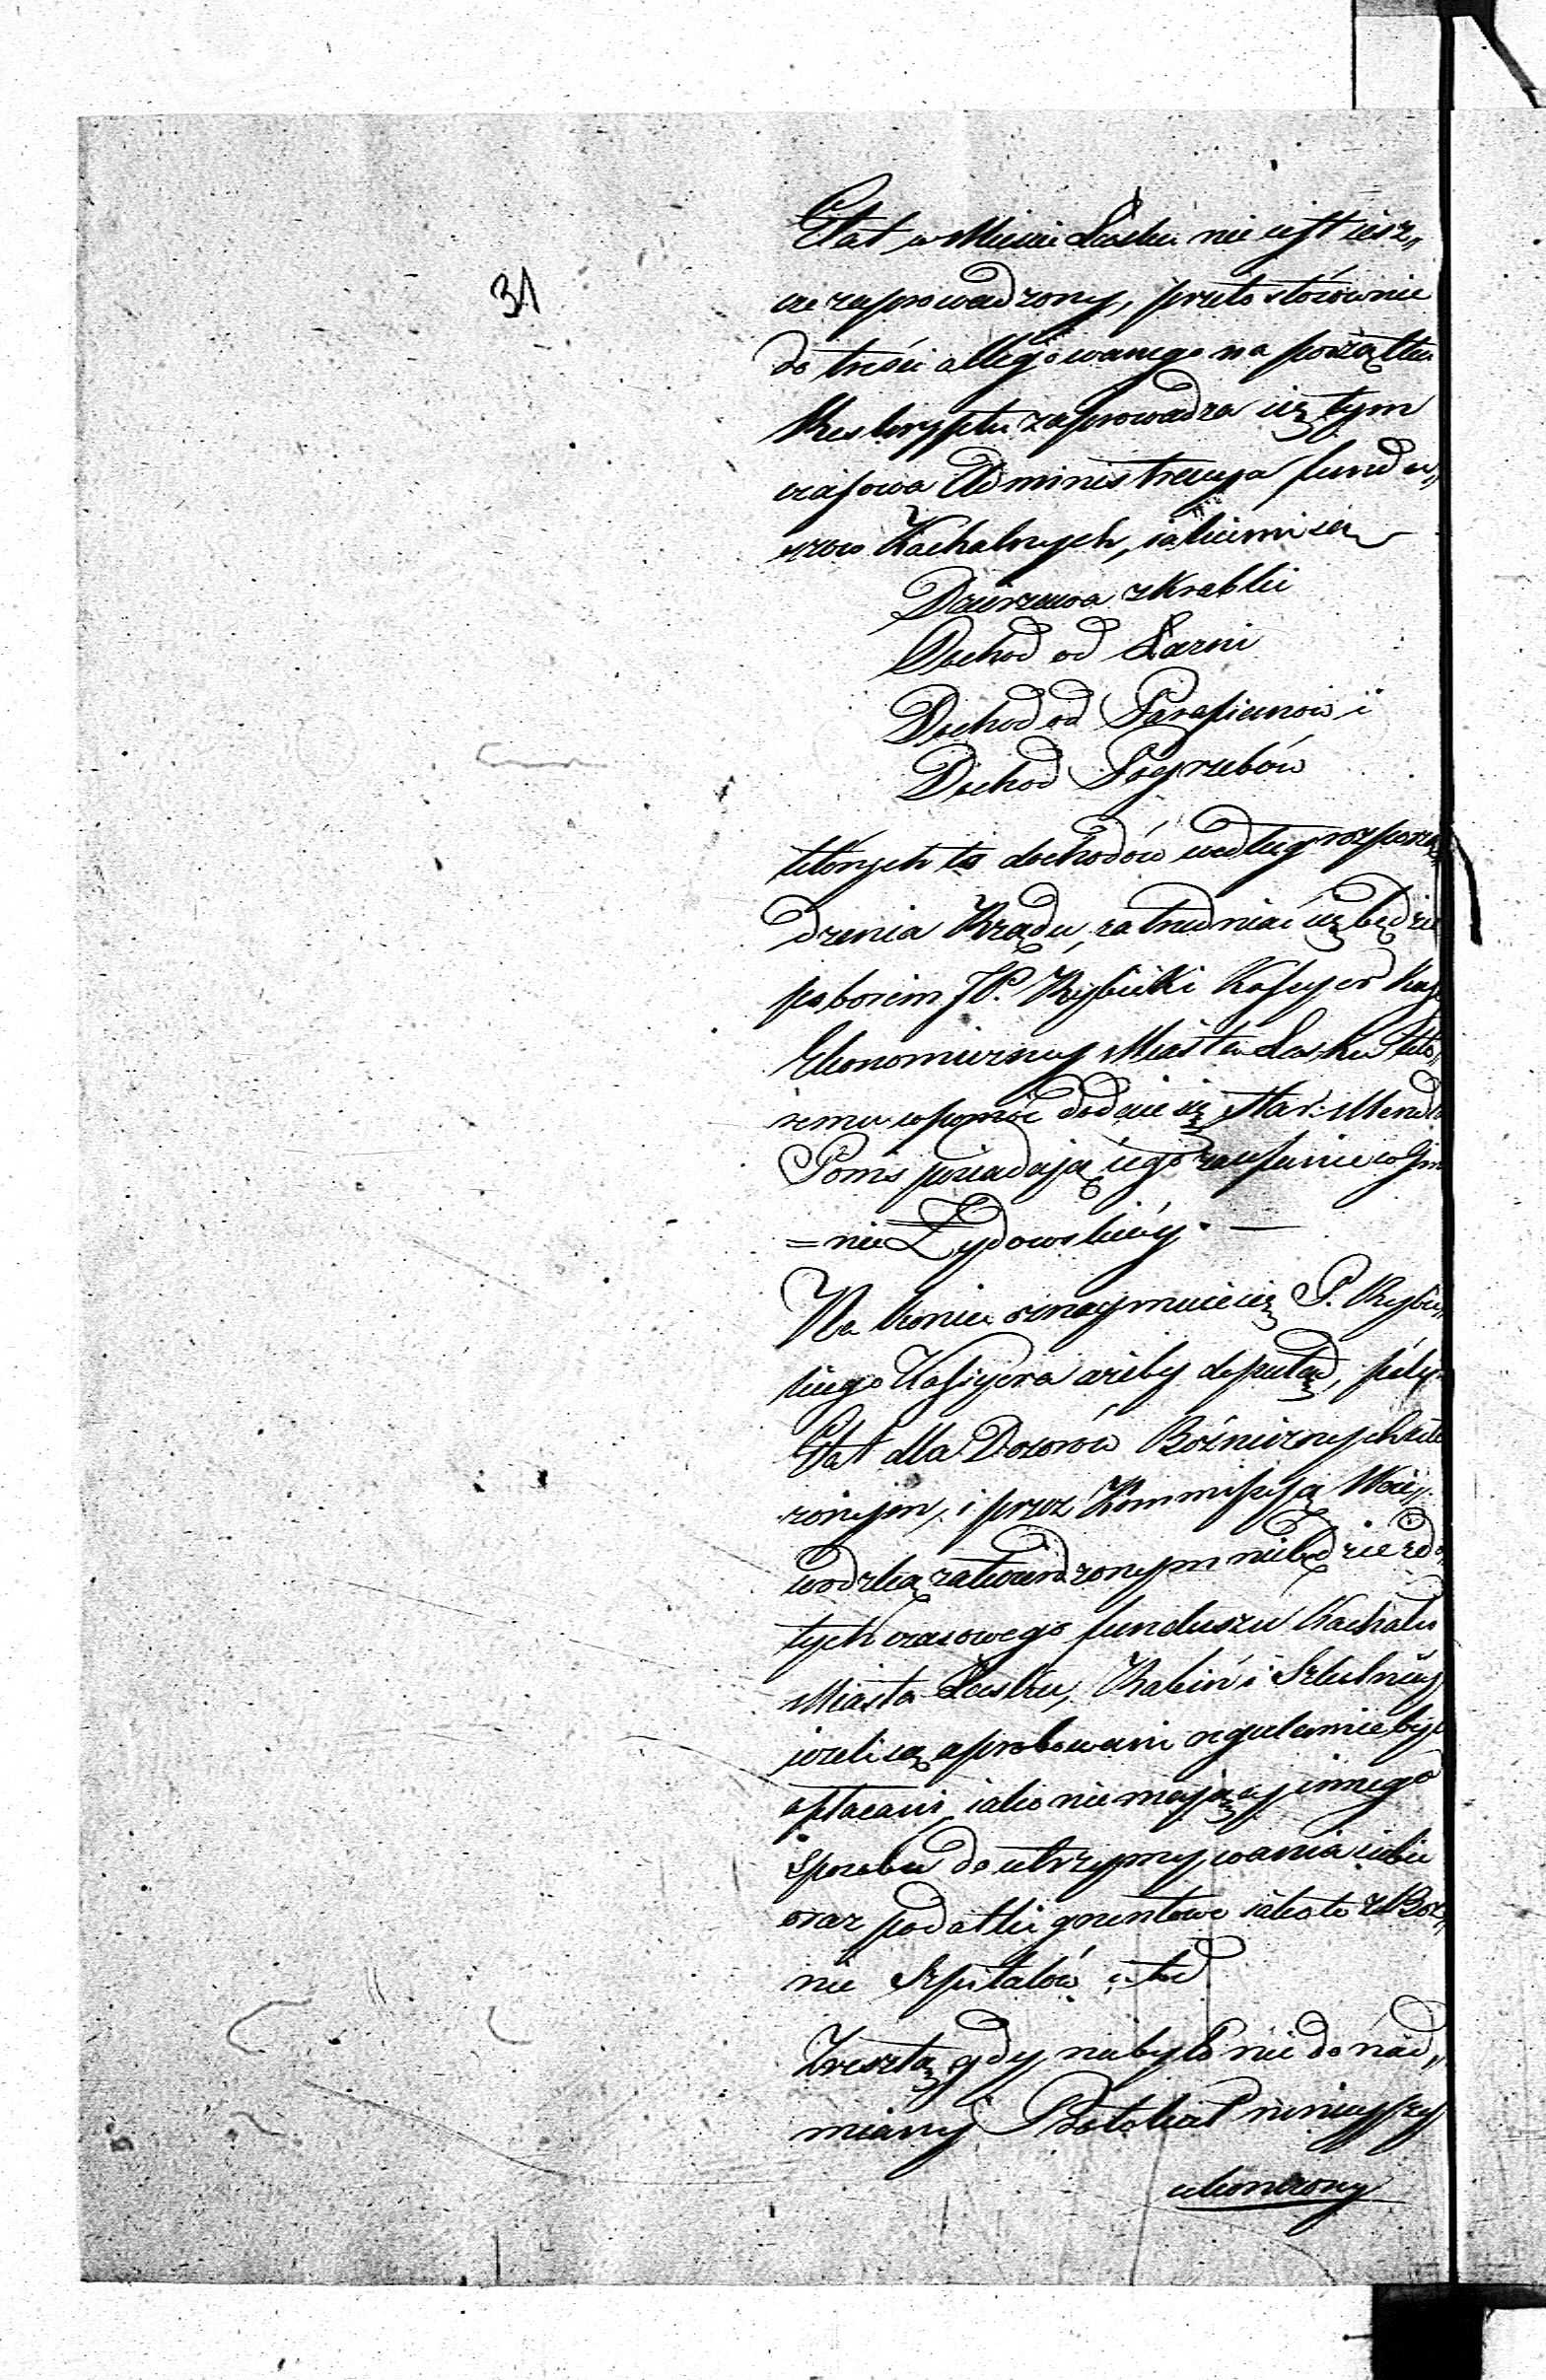 31
Etat w Mieście Łasku nie iest iesz„
cze zaprowadzony, przeto stósownie
do treści allegowanego na początku
Reskryptu zaprowadza się tym
czasowa Administracya fundu„
szow Kachalnych, iakiemi są
Dzierzawa z Krobki
Dochod od Łazni
Dochod od Parafianow i
Dochod Pogrzebów
których to dochodów według rozporzą„
dzenia Rządu, zatrudniać się będzie
poborem JP. Rybicki Kassyer Kassy
Ekonomiczney Miasta Łasku, któ„
remu w pomoc dodaie się Star: Mendel
Poms posiadaiącego zaufanie w Gmi
=nie Żydowskiéy. —
Na koniec obowiązuie się P. Rybic„
kiego Kassyera ażeby doputąd, póky
Etat dla Dozorów Bóżnicznych uło
żonym, i przez Kommissyą Woie„
wodzką zatwierdzonym niebędzie z do
tychczasowego funduszu Kachalu
Miasta Łasku, Rabin i Szkolnicy
ieżeli są aprobowani regularnie byli
opłacani iako nie maiący innego
sposobu do utrzymywania siebie
oraz podatki gruntowe iako to z Boż„
nic Szpitalów i td
Zresztą gdy niebyło nic do nad„
miany Protokuł ninieyszy
ukończony